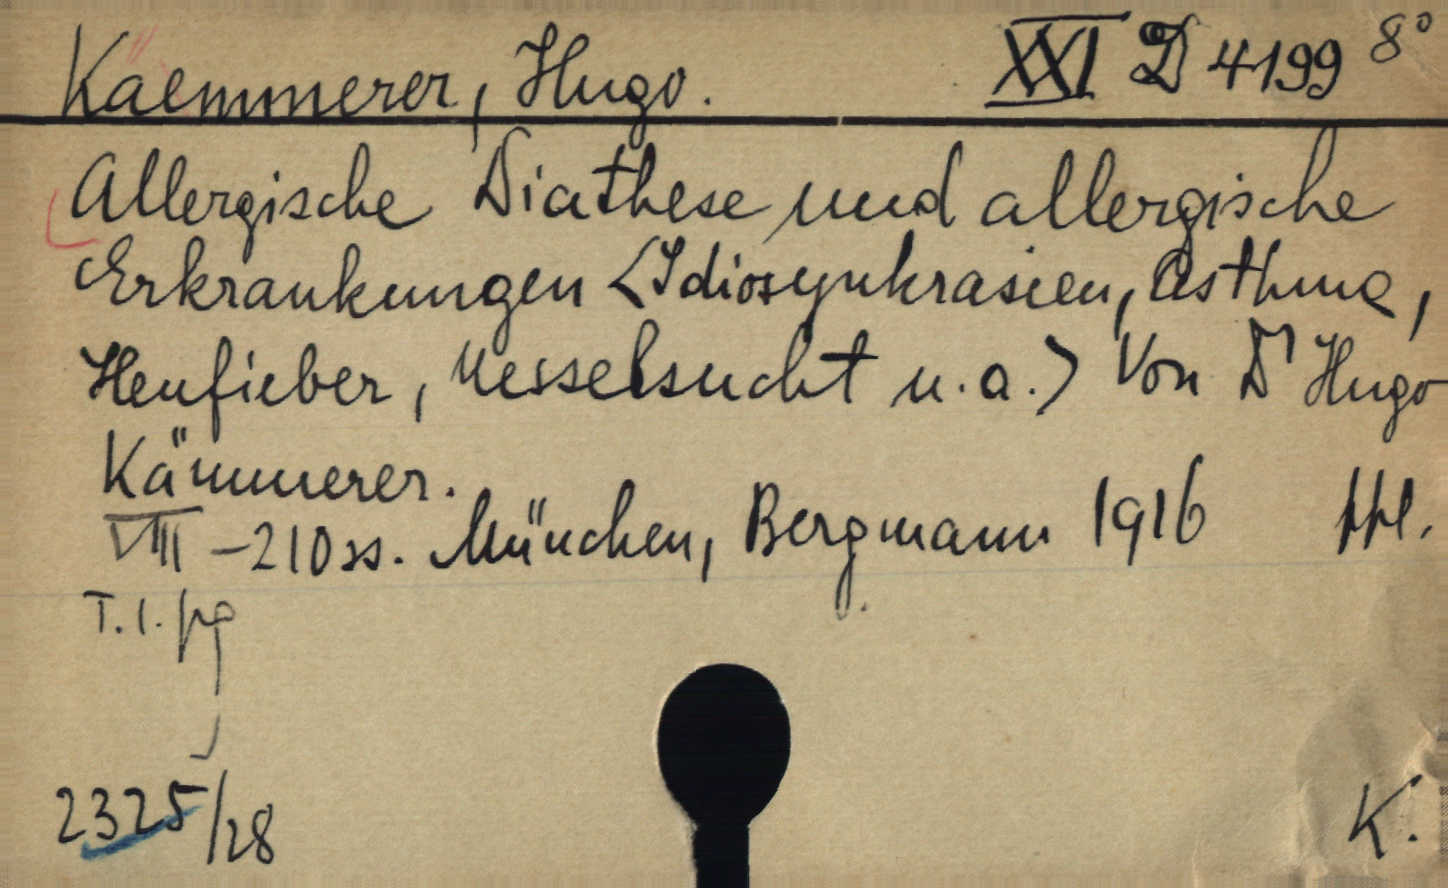 Kaemmerer, Hugo. XXI D 4199 8°
Allergische Diathese und allergische
Erkrankungen <Idiosynkrasien, Asthma,
Heufieber, Nesselsucht u.a.> Von Dr Hugo
Kämmerer.
VIII - 210 ss. München, Bergmann 1916
T. 1. pg
2325/28
K.